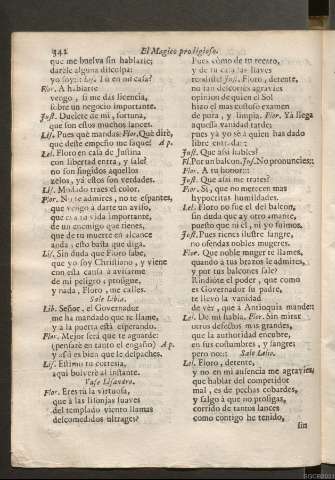 342
El Magico prodigioso.
que me buelva sin hablarte;
darèle alguna disculpa:
yo soy: Lis. Tù en mi casa?
Flor. A hablarte
vengo, si me das licencia,
sobre un negocio importante.
Just. Duelete de mi, fortuna,
que son estos muchos lances.
Lis. Pues què mandas? Flor. Què dirè,
que deste empeño me saque! Ap.
Lel. Floro en casa de Justina
con libertad entra, y sale?
no son fingidos aquellos
zelos, yà estos son verdades.
Lis. Mudado traes el color.
Flor. No te admires, no te espantes,
que vengo à darte un aviso,
que es à tu vida importante,
de un enemigo que tienes,
que de tu muerte en alcance
anda; esto basta que diga.
Lis. Sin duda que Floro sabe,
que yo soy Christiano, y viene
con esta causa à avisarme
de mi peligro; prosigue,
y nada, Floro, me calles.
Sale Libia.
Lib. Señor, el Governador
me ha mandado que te llame,
y à la puerta està esperando.
Flor. Mejor serà que te aguarde:
(pensarè en tanto el engaño) Ap.
y assi es bien que le despaches.
Lis. Estimo tu cortesia,
aqui bolverè al instante.
Vase Lisandro.
Flor. Eres tù la virtuosa,
que à las lisonjas suaves
del templado viento llamas
descomedidos ultrages?
Pues còmo de tu recato,
y de tu casa las llaves
rendiste? Just. Floro, detente,
no tan descortès agravies
opinion de quien el Sol
hizo el mas costoso examen
de pura, y limpia. Flor. Yà llega
aquessa vanidad tarde;
pues yà yo sè à quien has dado
libre entrada:
Just. Que assi hables?
Fl. Por un balcon. Jus. No pronuncies:
Flor. A tu honor:
Just. Que assi me trates?
Flor. Si, que no merecen mas
hypocritas humildades.
Lel. Floro no fue el del balcon,
sin duda que ay otro amante,
puesto que ni èl, ni yo fuimos.
Just. Pues tienes ilustre sangre,
no ofendas nobles mugeres.
Flor. Que noble muger te llames,
quando à tus brazos le admites,
y por tus balcones sale?
Rindiòte el poder, que como
es Governador su padre,
te llevò la vanidad
de vèr, que à Antioquia mande:
Lel. De mi habla. Flor. Sin mirar
otros defectos mas grandes,
que la autoridad encubre,
en sus costumbres, y sangre;
pero no: Sale Lelio.
Lel. Floro, detente,
y no en mi ausencia me agravies,
que hablar del competidor
mal, es de pechos cobardes,
y salgo à que no prosigas,
corrido de tantos lances
como contigo he tenido,
sin